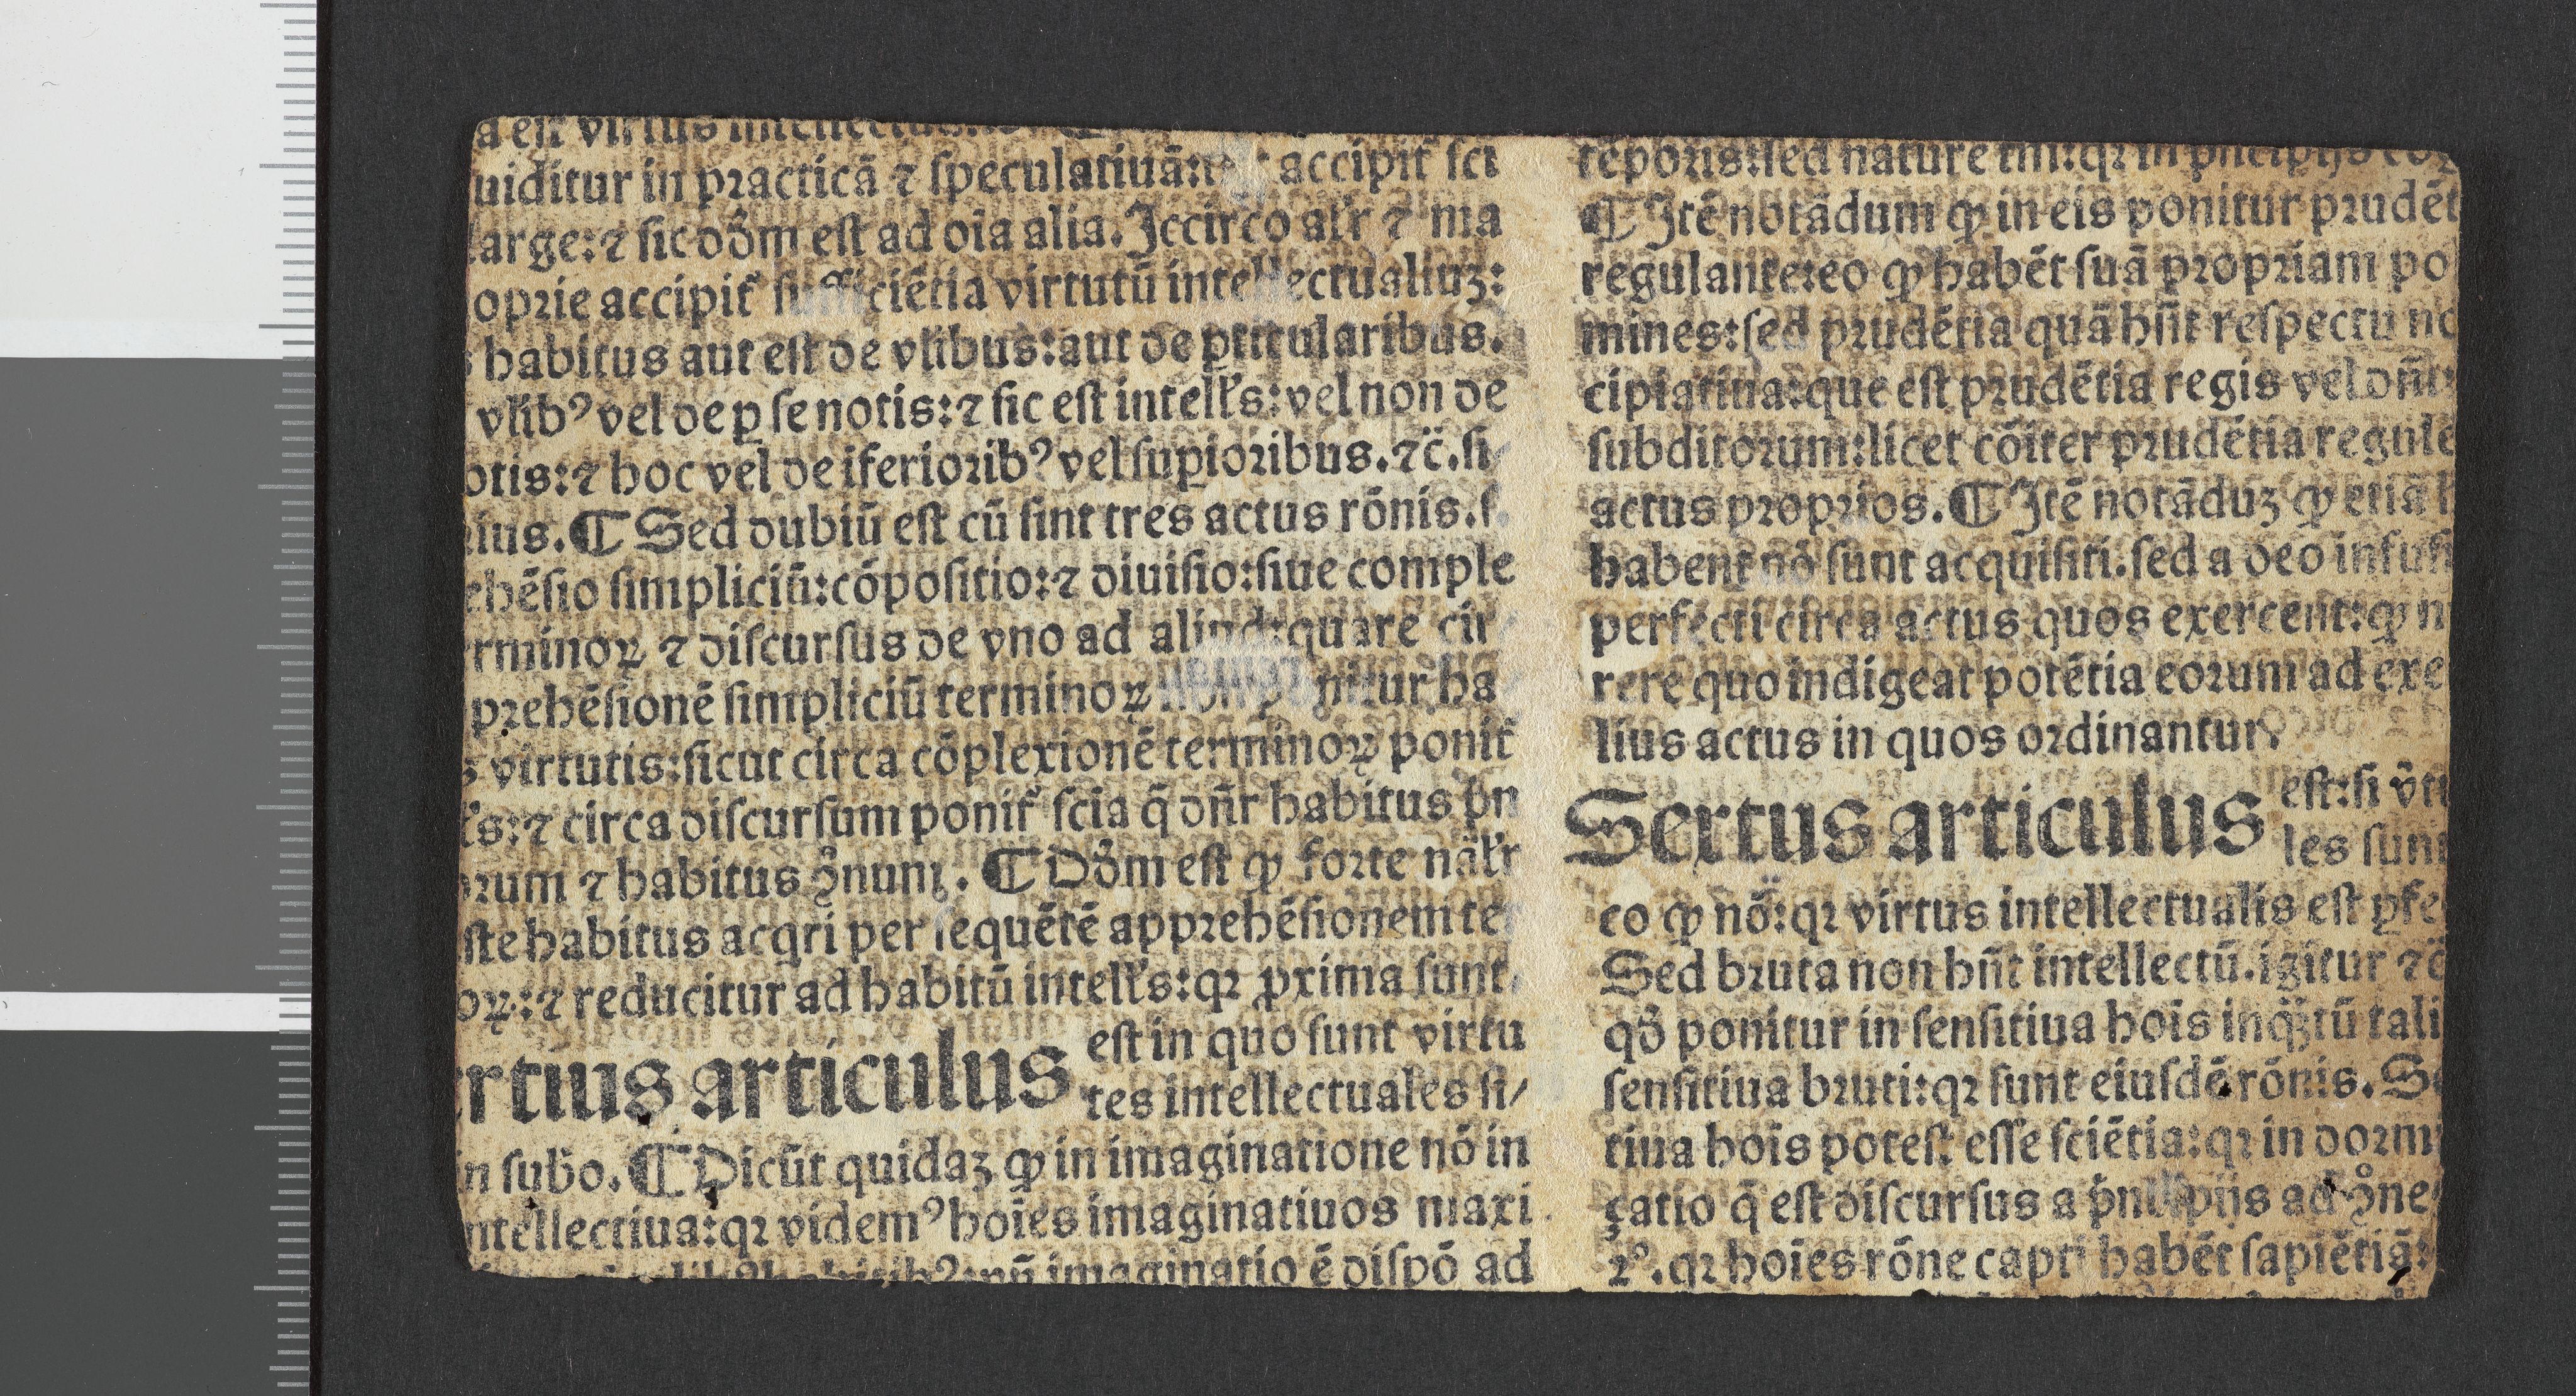 a est virtus intellectus
uiditur in practicā ⁊ ſpeculatiuā: accipit̄ ſci
large: ⁊ ſic dōm eſt ad oīa alia. Jccirco al'r ⁊ ma
oprie accipit̄ ſufficiētia virtutū intellectualiuꝫ:
s habitus aut eſt de vl̄ibus: aut de ꝑticularibus.
vl̄ibꝰ vel de ꝑ ſe notis: ⁊ ſic eſt intell's: vel non de
otis: ⁊ hoc vel de iferioribꝰ vel ſuꝑioribus. ⁊c̄. ſi
ius. ¶ Sed dubiū eſt cū ſint tres actus rōnis. ſ.
ehēſio ſimpliciū: cōpoſitio: ⁊ diuiſio: ſiue comple
rminoꝝ ⁊ diſcurſus de vno ad aliud: quare cir
prehēſionē ſimpliciū terminoꝝ non ponitur ha
s virtutis: ſicut circa cōplexionē terminoꝝ ponit̄
l's: ⁊ circa diſcurſum ponit̄ ſcīa q̄ dn̄r habitus pn̄
orum ⁊ habitus ꝯnunꝫ. ¶ Dōm eſt ꝙ forte nāl'r
ſte habitus acqri per ſequētē apprehēſionem ter
oꝝ: ⁊ reducitur ad habitū intell's: qꝛ ꝓxima ſunt
rtius articulus eſt in quo ſunt virtu
tes intellectuales ſi/
in ſubo. ¶ Dicūt quidaꝫ ꝙ in imaginatione nō in
ntellectiua: qꝛ videmꝰ hoīes imaginatiuos maxi
imaginatio ē diſpō ad
tēporis: ſed nature tm̄: qꝛ in
¶ Jtē notādum ꝙ in eis ponitur prudēt
regulante: eo ꝙ habēt ſuā propriam po
mines: ſed prudētia quā hn̄t reſpectu no
cipiatiua: que eſt prudētia regis vel dn̄i:
ſubditorum: licet cōiter prudētia regule
actus proprios. ¶ Jtē notāduꝫ ꝙ etiā h
habent nō ſunt acquiſiti. ſed a deo infuſi
perfecti circa actus quos exercent: ꝙ n
rere quo indigeat potētia eorum ad exe
lius actus in quos ordinantur.
Sextus articulus eſt: ſi v̄tu
les ſunt
eo ꝙ nō: qꝛ virtus intellectualis eſt ꝑfe
Sed bruta non hn̄t intellectū. igitur ⁊c̄
qō ponitur in ſenſitiua hoīs inqꝫtū tali
ſenſitiua bruti: qꝛ ſunt eiuſdē rōnis. Se
tiua hoīs poteſt eſſe ſciētia: qꝛ in dorm
çatio q̄ eſt diſcurſus a ad ꝯne
2º. qꝛ hoīes rōne capti habēt ſapiētiā: